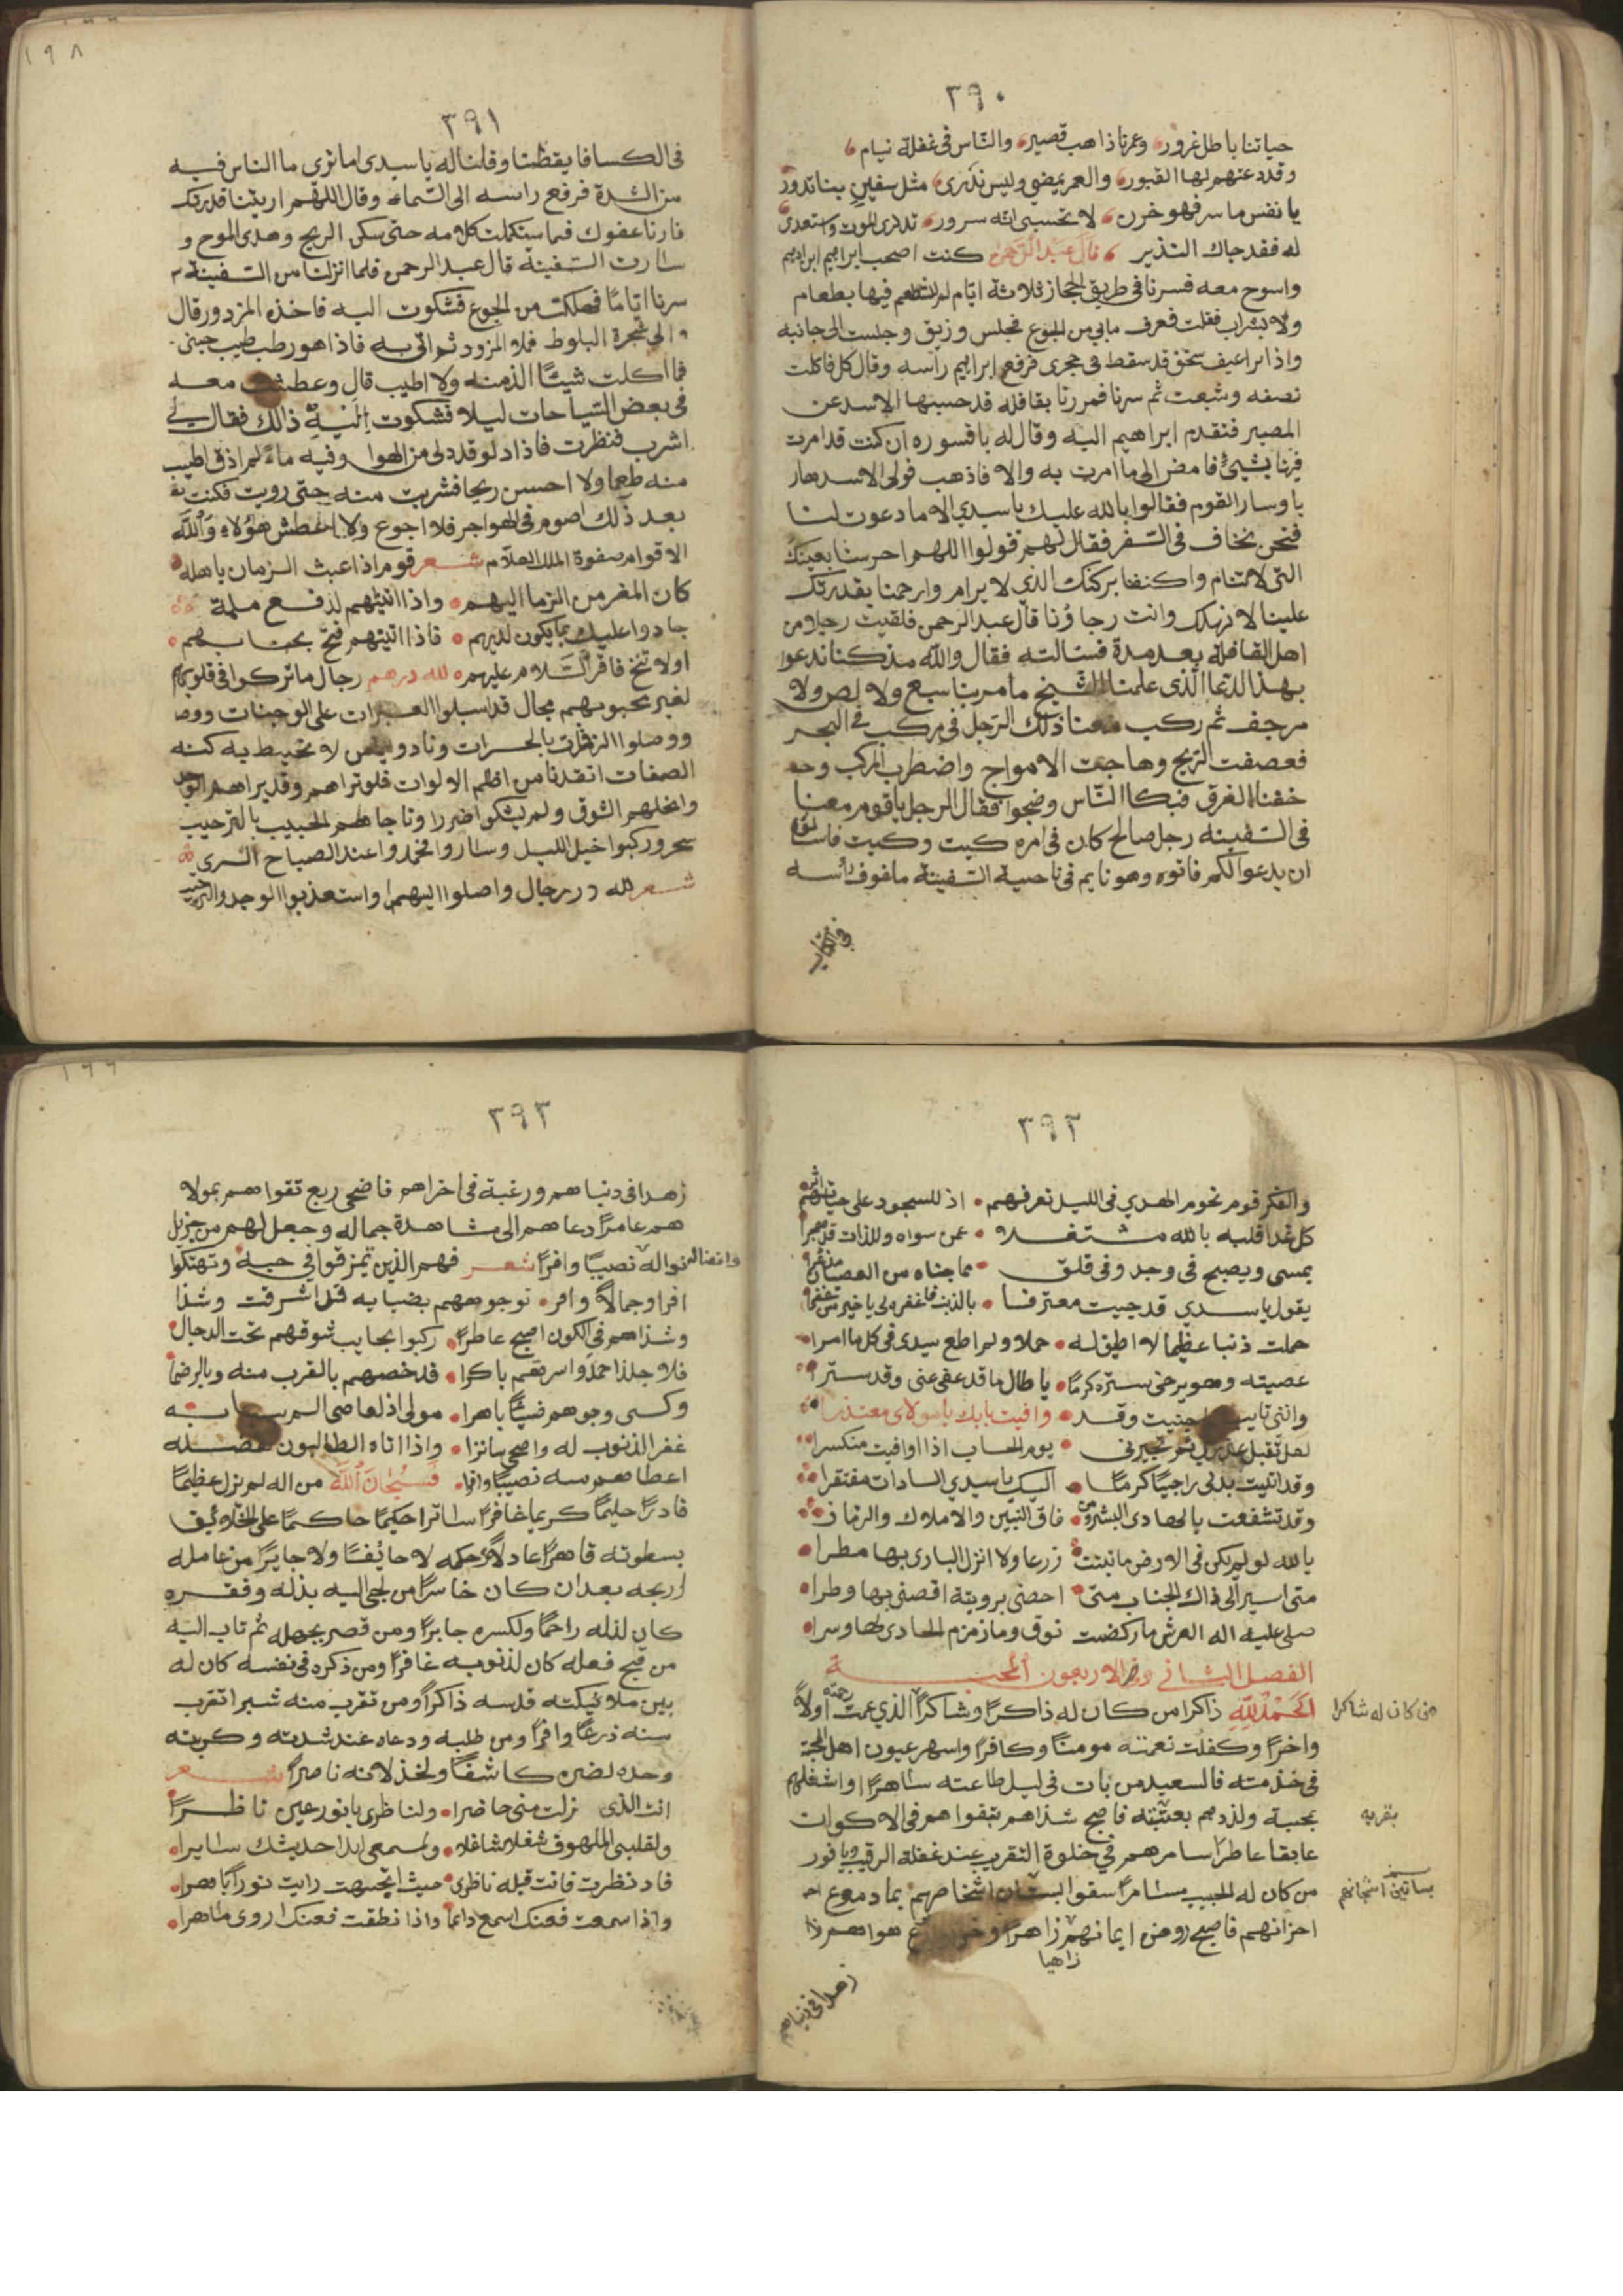 ٣٩٠
حياتنا باطل غرور وعمرنا ذاهب قصير والناس في غفلة نيام
وقد دعتهم لها القبور والعمر يمضي وليس ندرى مثل سفين بنا تدور
يا نفس ما سر فهو حزن لا تحسبى انه سرور تذكرى الموت واستعدى
له فقد جاك النذير قال عبد الرحمن كنت اصحب ابراهيم ابن ادهم
واسوح معه فسرنا فى طريق الحجاز ثلاثة ايام لم نطعم فيها بطعام
ولا بشراب فقلت فعرف مابي من الجوع فجلس وزيق وجلست الى جانبه
واذا برغيف سخن قد سقط فى حجرى فرفع ابراهيم رأسه وقال كل فاكلت
نصفه وشبعت ثم سرنا فمررنا بقافلة قد حبسها الاسد عن
المصير فتقدم ابراهيم اليه وقال له يا قسوره ان كنت قد امرت
فينا بشيئ فامض الى ما امرت به والا فاذهب فولى الاسد هار
با وسار القوم فقالوا بالله عليك يا سيدي الا ما دعوت لنا
فنحن نخاف فى السفر فقال لهم قولوا اللهم احرسنا بعينك
التى لا تنام واكنفنا بركنك الذي لا يرام وارحمنا بقدرتك
علينا لا نهلك وانت رجاؤنا قال عبد الرحمن فلقيت رجلا من
اهل القافلة بعد مدة فسالته فقال والله مذ كنا ندعوا
بهذا الدعا الذى علمنا الشيخ ما مر بنا سبع ولا لص ولا
مرجف ثم ركب معنا ذلك الرجل فى مركب فى البحر
فعصفت الريح وهاجت الامواج واضطرب المركب وحـ
خفنا الغرق فبكا الناس وضجوا فقال الرجل يا قوم معنا
فى السفينه رجل صالح كان فى امره كيت وكيت فاسالوه
ان يدعوا لكم فاتوه وهو نايم فى ناحية السفينة ملفوف رأسه
فى الكسا
٣٩١
فى الكسا فايقظنا وقلنا له يا سيدى اما ترى ما الناس فيه
من الشدة فرفع راسه الى السماء وقال اللهم اريتنا قدرتك
فارنا عفوك فما استكملت كلامه حتى سكن الريح وهدى الموج و
سارت السفينة قال عبد الرحمن فلما انزلنا من السفينة
سرنا اياما فهلكت من الجوع فشكوت اليه فاخذ المزود وقال
الى شجرة البلوط فملا المزود ثم اتى به فاذا هو رطب طيب جنى
فما اكلت شيئا الذ منه ولا اطيب قال وعطشت معه
فى بعض السياحات ليلا فشكوت اليه ذلك فقال لي
اشرب فنظرت فاذا دلو قد دلى من الهوا وفيه ماء لم اذق اطيب
منه طعما ولا احسن ريحا فشربت منه حتى رويت فكنت
بعد ذلك اصوم فى الهواجر فلا اجوع ولا اعطش هؤلاء والله
الاقوام صفوة الملك العلام شعر قوم اذا عبث الزمان باهله
كان المفر من الزمان اليهم واذا اتيتهم لدفع ملمة
جادوا عليك بما يكون لديهم فاذا اتيتهم فنخ بجنابهم
اولا تنخ فاقر السلام عليهم لله درهم رجال ما تركوا فى قلوبهم
لغير محبوبهم مجال قد اسبلوا العبرات على الوجنات
ووصلوا الزفرات بالحسرات ونادوا يا من لا تحيط به كنه
الصفات انقذنا من اظلم الالوات فلو تراهم وقد براهم الوجد
وانحلهم الشوق ولم يشكوا ضررا وناجاهم الحبيب بالترحيب
سحر وركبوا خيل الليل وساروا فحمدوا عند الصباح السرى
شعر لله در رجال واصلوا اليهم واستعذبوا الوجد والتبريح
٣٩٢
والفكر قوم نجوم الهدي فى الليل تعرفهم اذ للسجود على جباههم اثرا
كل غدا قلبه بالله مشتغلا عمن سواه وللذات قد هجرا
يمسى ويصبح فى وجد وفى قلق مما جناه من العصيان
يقول يا سيدي قد جيت معترفا بالذنب فاغفر لى يا خير من غفرا
حملت ذنبا عظيما لا اطيق له حملا ولم اطع سيدى فى كل ما امرا
عصيته وهو يرخى ستره كرما يا طال ما قد عفى عنى وقد سترا
وانني تايب وقد وافيت بابك يا مولاى معتذرا
لعل تقبل عذرى يوم الحساب اذا وافيت منكسرا
وقد اتيت بذلى راجيا كرما اليك يا سيدي السادات مفتقرا
وقد تشفعت بالهادى البشير ومن فاق النبيين والاملاك والزمرا
بالله لو لم يكن فى الارض ما نبتت زرعا ولا انزل البارى بها مطرا
متى اسير الى ذاك الجناب متى احضى برويته اقضى بها وطرا
صلى عليه اله العرش ما ركضت نوق وما زمزم الحادى لها وسرا
الفصل الثانى والاربعون فى المحبة
الحمد لله ذاكرا من كان له ذاكرا وشاكرا الذي عمت رحمته اولا
من كان له شاكرا
واخرا وكفلت نعمته مومنا وكافرا واسهر عيون اهل المحبة
فى خدمته فالسعيد من بات فى ليل طاعته ساهرا واشغلهم
بحبه ولذذهم فاصبح شذاهم بتقواهم فى الاكوان
بقربه
عابقا عاطرا سامرهم فى خلوة التقريب عند غفلة الرقيب ويا فوز
من كان له الحبيب مسامرا سقوا بستان اشخاصهم بما دموع
بساتين اشجانهم
احزانهم فاصبح روض ايمانهم زاهرا هواهم
زاهيا
زهدا فى دنياهم
٣٩٣
زهدا فى دنياهم ورغبة فى اخراهم فاضحى ربع تقواهم بمولا
هم عامرا دعاهم الى مشاهدة جماله وجعل لهم من جزيل
نواله نصيبا وافرا شعر فهم الذين تمزقوا في حبه وتهتكوا
وافضاله
افرا وجمالا وافر نوجوههم بضيايه قد اشرقت وشذا
وشذاهم فى الكون اصبح عاطرا ركبوا نجايب شوقهم تحت الدجال
فلاجل ذا حمدوا سراهم باكرا قد خصهم بالقرب منه وبالرضا
وكسى وجوههم ضيئا باهرا مولى اذ العاصى الم ببابه
غفر الذنوب له واصحى ساترا واذا اتاه الطالبون لفضله
اعطاهم منه نصيبا وافرا فسبحان الله من اله لم يزل عظيما
قادرا حليما كريما غافرا ساترا حكيما حاكما على الخلائق
بسطوته قاهرا عادلا فى حكمه لا حائفا ولا جايرا من عامله
اربحه بعد ان كان خاسرا من لجى اليه بذله وفقره
كان لذله راحما ولكسره جابرا ومن قصر بجهله ثم تاب اليه
من قبح فعله كان لذنوبه غافرا ومن ذكره فى نفسه كان له
بين ملائيكته قدسه ذاكرا ومن تقرب منه شبرا تقرب
منه ذرعا وافرا ومن طلبه ودعاه عند شدته وكربته
وحده لضره كاشفا ولخذلانه ناصرا شعر
انت الذى نزلت منى حاضرا ولناظرى يا نور عين ناظرا
ولقلبى الملهوف شغلا شاغلا ولسمعى ابدا حديثك سايرا
فاذ نظرت فانت قبله ناظرى حيث اتجهت رايت نورا باهرا
واذا سمعت فعنك اسمع دائما واذا نطقت فعنك اروى ماهرا
١٩٨
١٩٩